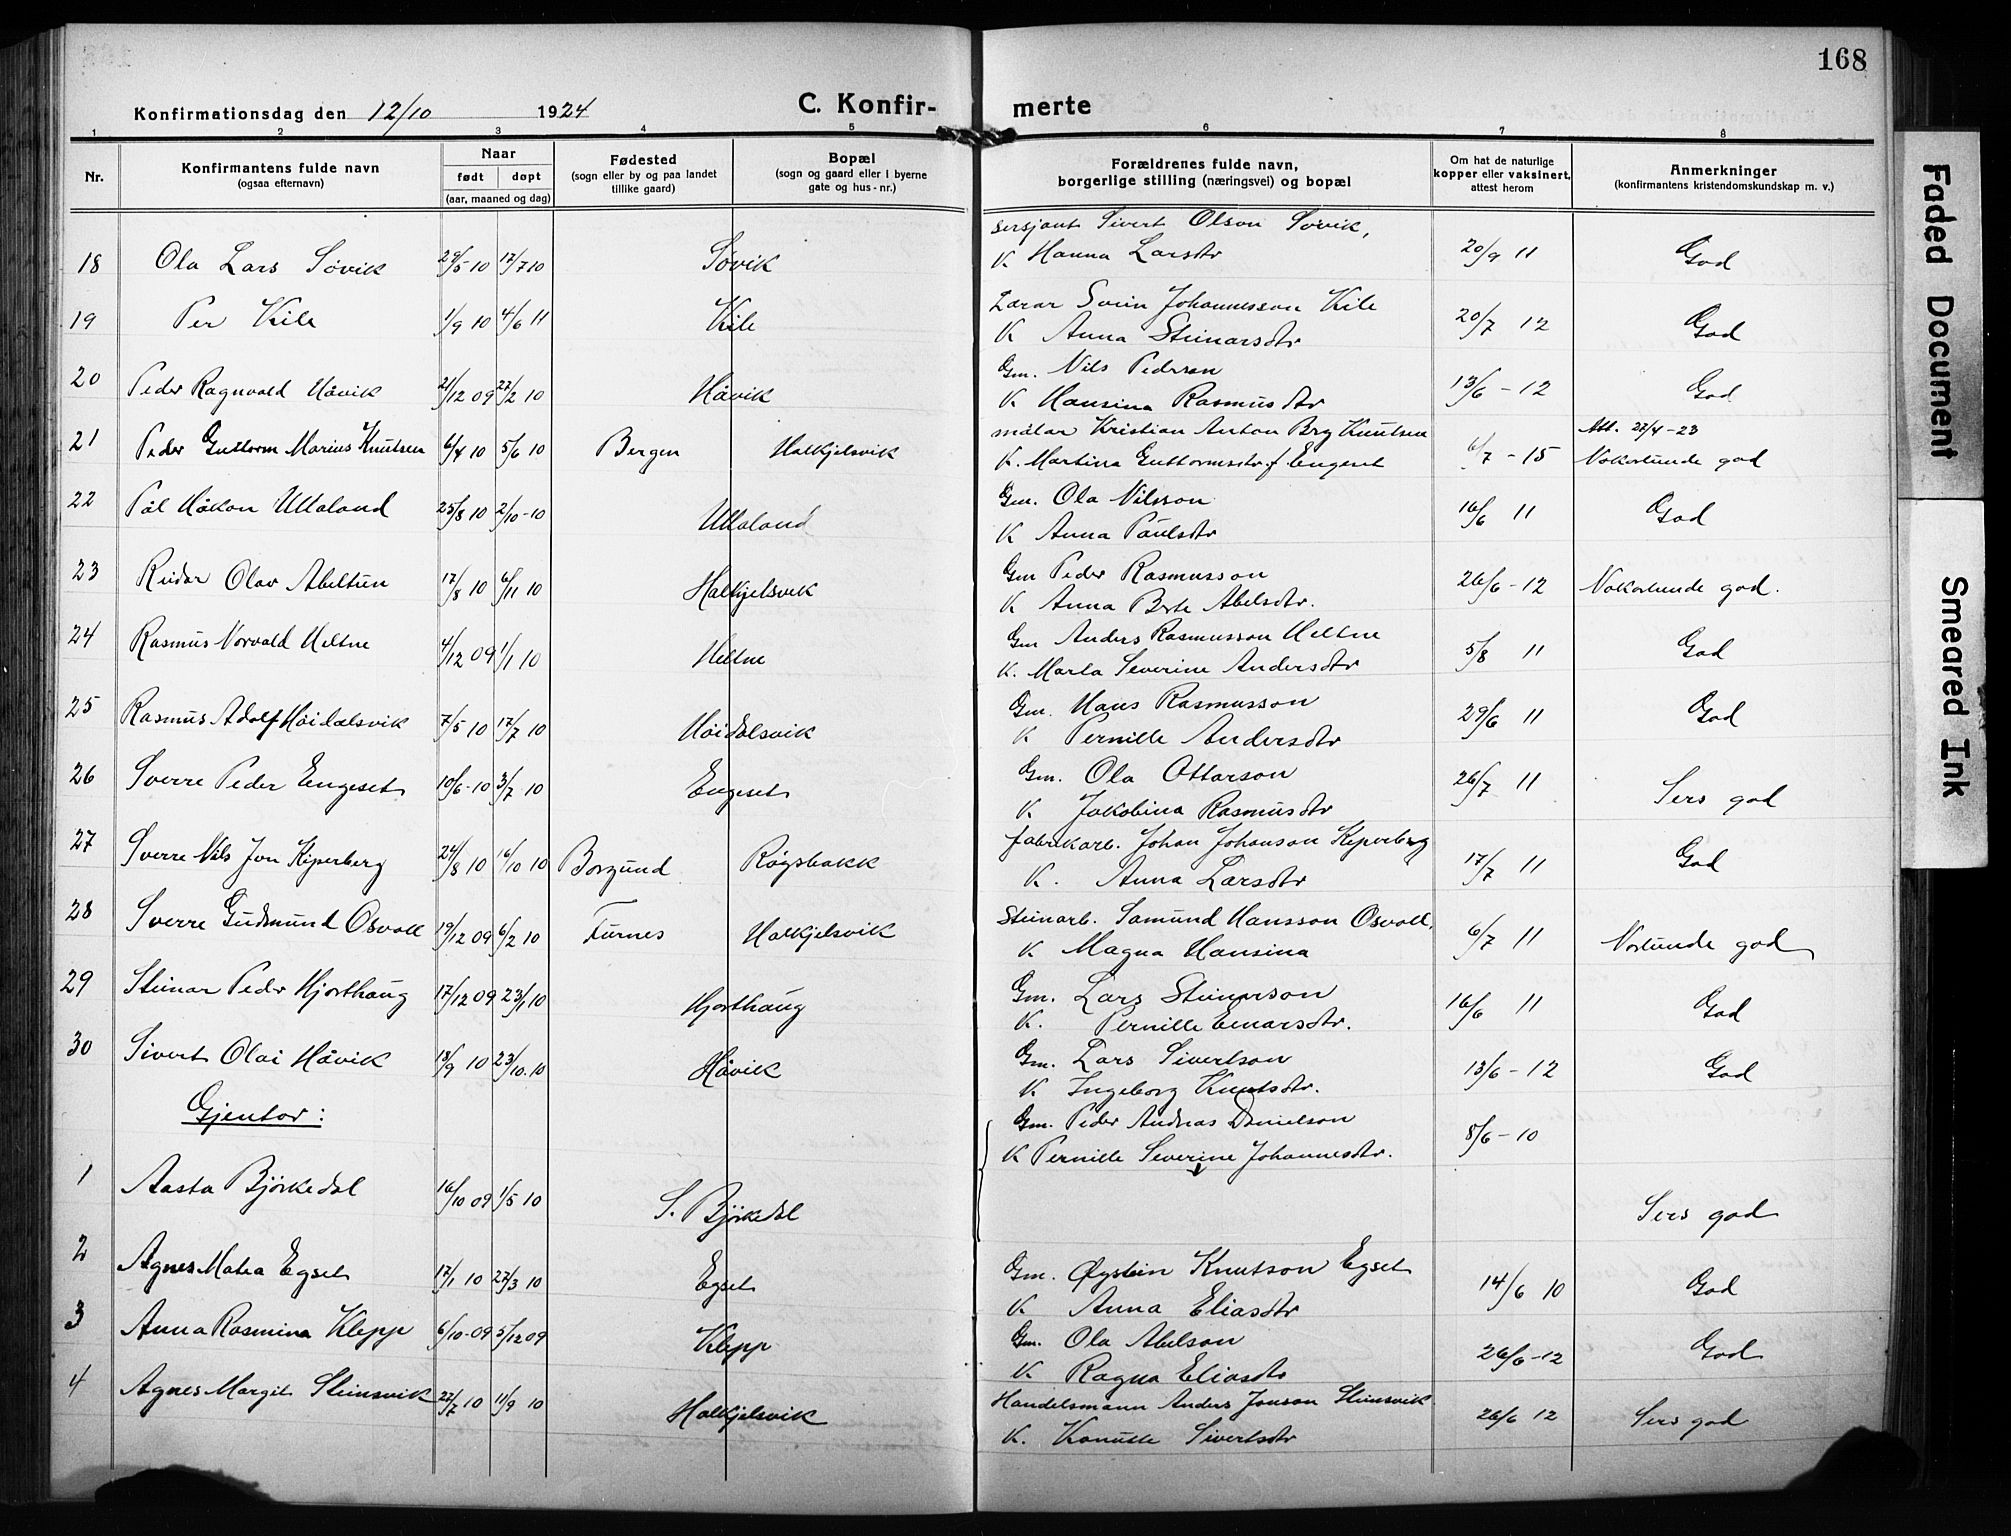 168
Konfirmationsdag den 12/10 1924
C. Konfir- merte
1 2 3 4 5 6 7 8
Nr.
Konfirmantens fulde navn
(ogsaa efternavn)
Naar
født døpt
(aar, maaned og dag)
Fødested
(sogn eller by og paa landet
tillike gaard)
Bopæl
(sogn og gaard eller i byerne
gate og hus-nr.)
Forældrenes fulde navn,
borgerlige stilling (næringsvei) og bopæl
Om hat de naturlige
kopper eller vaksinert,
attest herom
Anmerkninger
(konfirmantens kristendomskundskap m. v.)
sersjant Sivert Olson Søvik,
18 Ola Lars Søvik 29/5 10 17/7 10 Søvik K Hanna Larsdtr 20/9 11 God
Lærar Svein Johannesson Kile
19 Per Kile 1/9 10 4/6 11 Kile K Anna Steinarsdtr 20/7 12 God
Gm. Nils Pederson
20 Peder Ragnvald Håvik 21/12 09 27/2 10 Håvik K Hansina Rasmusdtr 13/6 - 12 God
målar Kristian Anton Bry Knutsen Att. 27/4-23
21 Peder Guttorm Marius Knutsen 6/4 10 5/6 10 Bergen Halkjelsvik K. Martina Guttormsdtr. f. Engeset 6/7 - 15 Nokorlunde god
Gm. Ola Nilsson
22 Pål Håkon Ullaland 25/8 10 2/10-10 Ullaland K Anna Paulsdtr 16/6 11 God
Gm Peder Rasmusson
23 Reidar Olav Abeltun 17/8 10 6/11 10 Halkjelsvik K Anna Brte Abelsdtr. 26/6-12 Nokorlunde god.
Gm Anders Rasmusson Heltne
24 Rasmus Norvald Heltne 4/12 09 1/1 10 Heltne K. Marta Severine Andersdtr 5/8 11 God
Gm. Hans Rasmusson
25 Rasmus Adolf Høidalsvik 7/5 10 17/7 10 Høidalsvik K Pernille Andersdtr 29/6 11 God
Gm. Ola Ottarson
26 Sverre Peder Engeset 10/6-10 3/7 10 Engeset K Jakobina Rasmusdtr 26/7 11 Sers god
fabrikarb. Johan Johanson Kiperberg
27 Sverre Nils Jon Kiperberg 24/8 10 16/10 10 Borgund Røgsbakk K. Anna Larsdtr 17/7 11 God
Steinarb. Samund Hansson Osvoll,
28 Sverre Gudmund Osvoll 19/12 09 6/2 10 Furnes Halkjelsvik K Magna Hansina 6/7 11 Norlunde god
Gm. Lars Steinarson
29 Steinar Peder Hjorthaug 17/12 09 23/1 10 Hjorthaug K. Pernille Einarsdtr. 16/6 11 God
Gm. Lars Sivertson
30 Sivert Olai Håvik 18/9 10 23/10.10 Håvik K Ingeborg Knutsdtr. 13/6 - 12 God
Gjentor:
Gm. Peder Andreas Danielson
K Pernille Severine Johannesdtr. 8/6-10
1 Aasta Bjørkedal 16/10 09 1/5 10 S. Bjørkedal Sers god
Gm. Øystein Knutson Egset
2 Agnes Matea Egset 17/1 10 27/3 10 Egset K Anna Eliasdtr 14/6 10 God
Gm. Ola Abelson
3 Anna Rasmina Klepp 6/10-09 5/12 09 Klepp K Ragna Eliasdtr 26/6-12 God
Handelsmann Anders Jonson Steinsvik
4 Agnes Margit Steinsvik 27/7 10 11/9 10 Halkjelsvik K. Sivertsdtr 26/6 12 Sers god
Faded Document
Smeared Ink